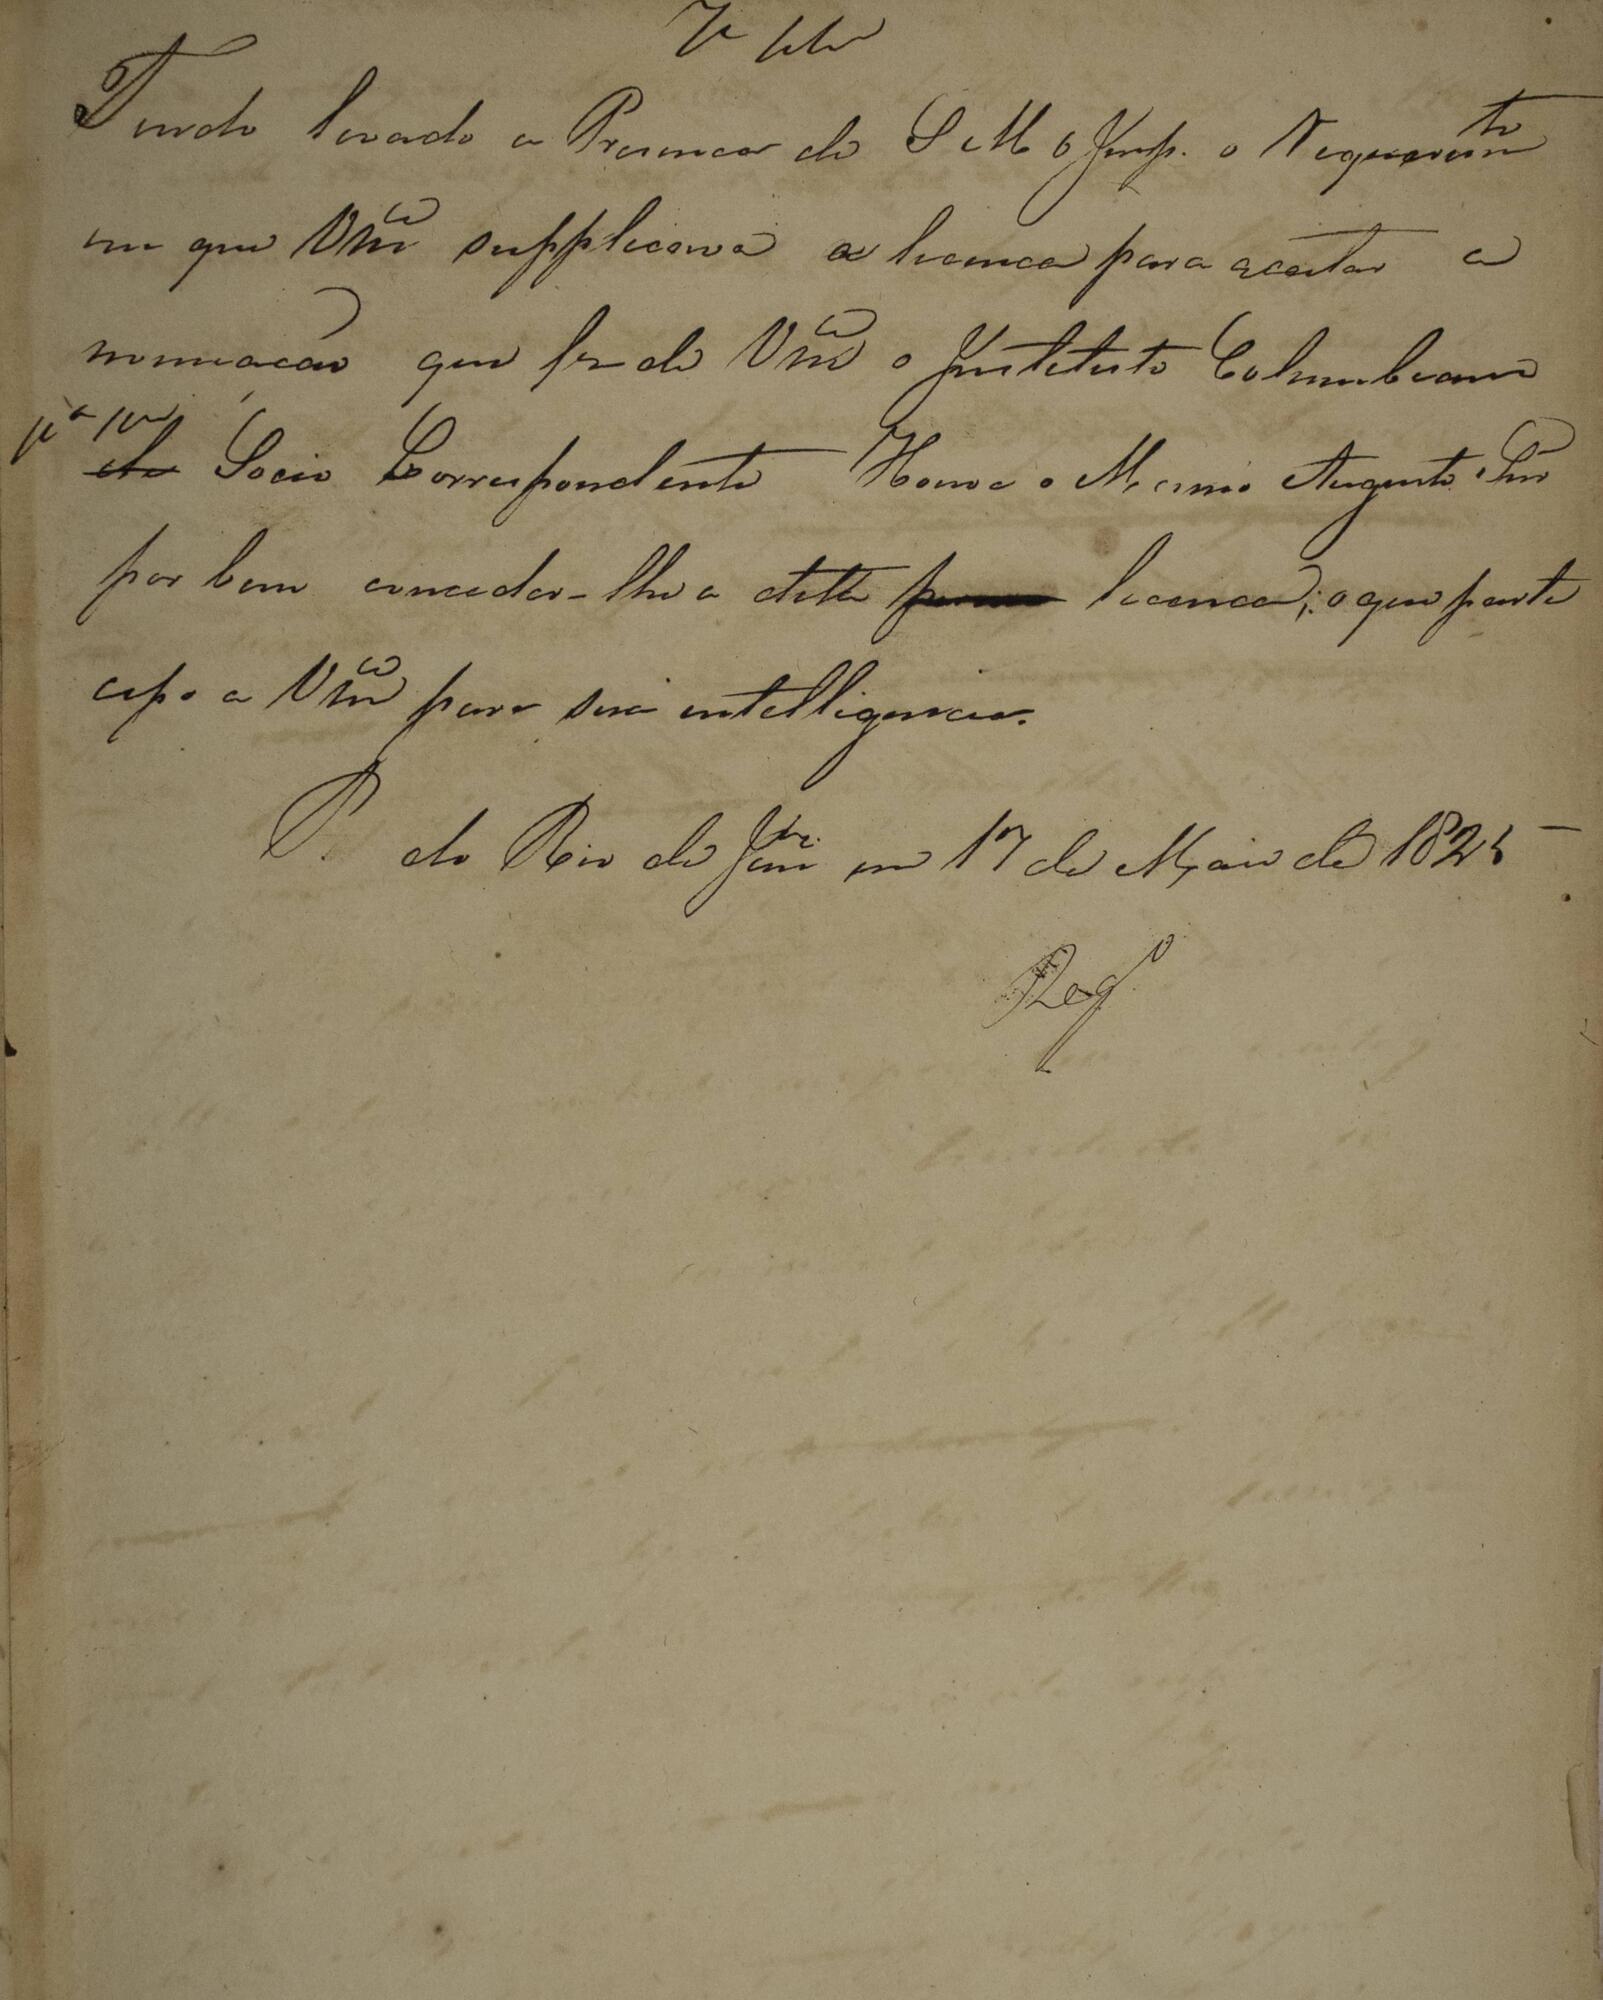 Tendo levado a Presença de S M O Imp. o Requerimto
em que Vmce supplicava a licença para aceitar a
nomeação que fez de Vmce o Instituto Columbiano
pa seu
do Socio Correspondente Houve o Mesmo Augusto Snr
por bem conceder-lhe a dita licença; o que parti
cipo a Vmce para sua intelligencia.
P. do Rio de Janro em 17 de Maio de 1825
Rego